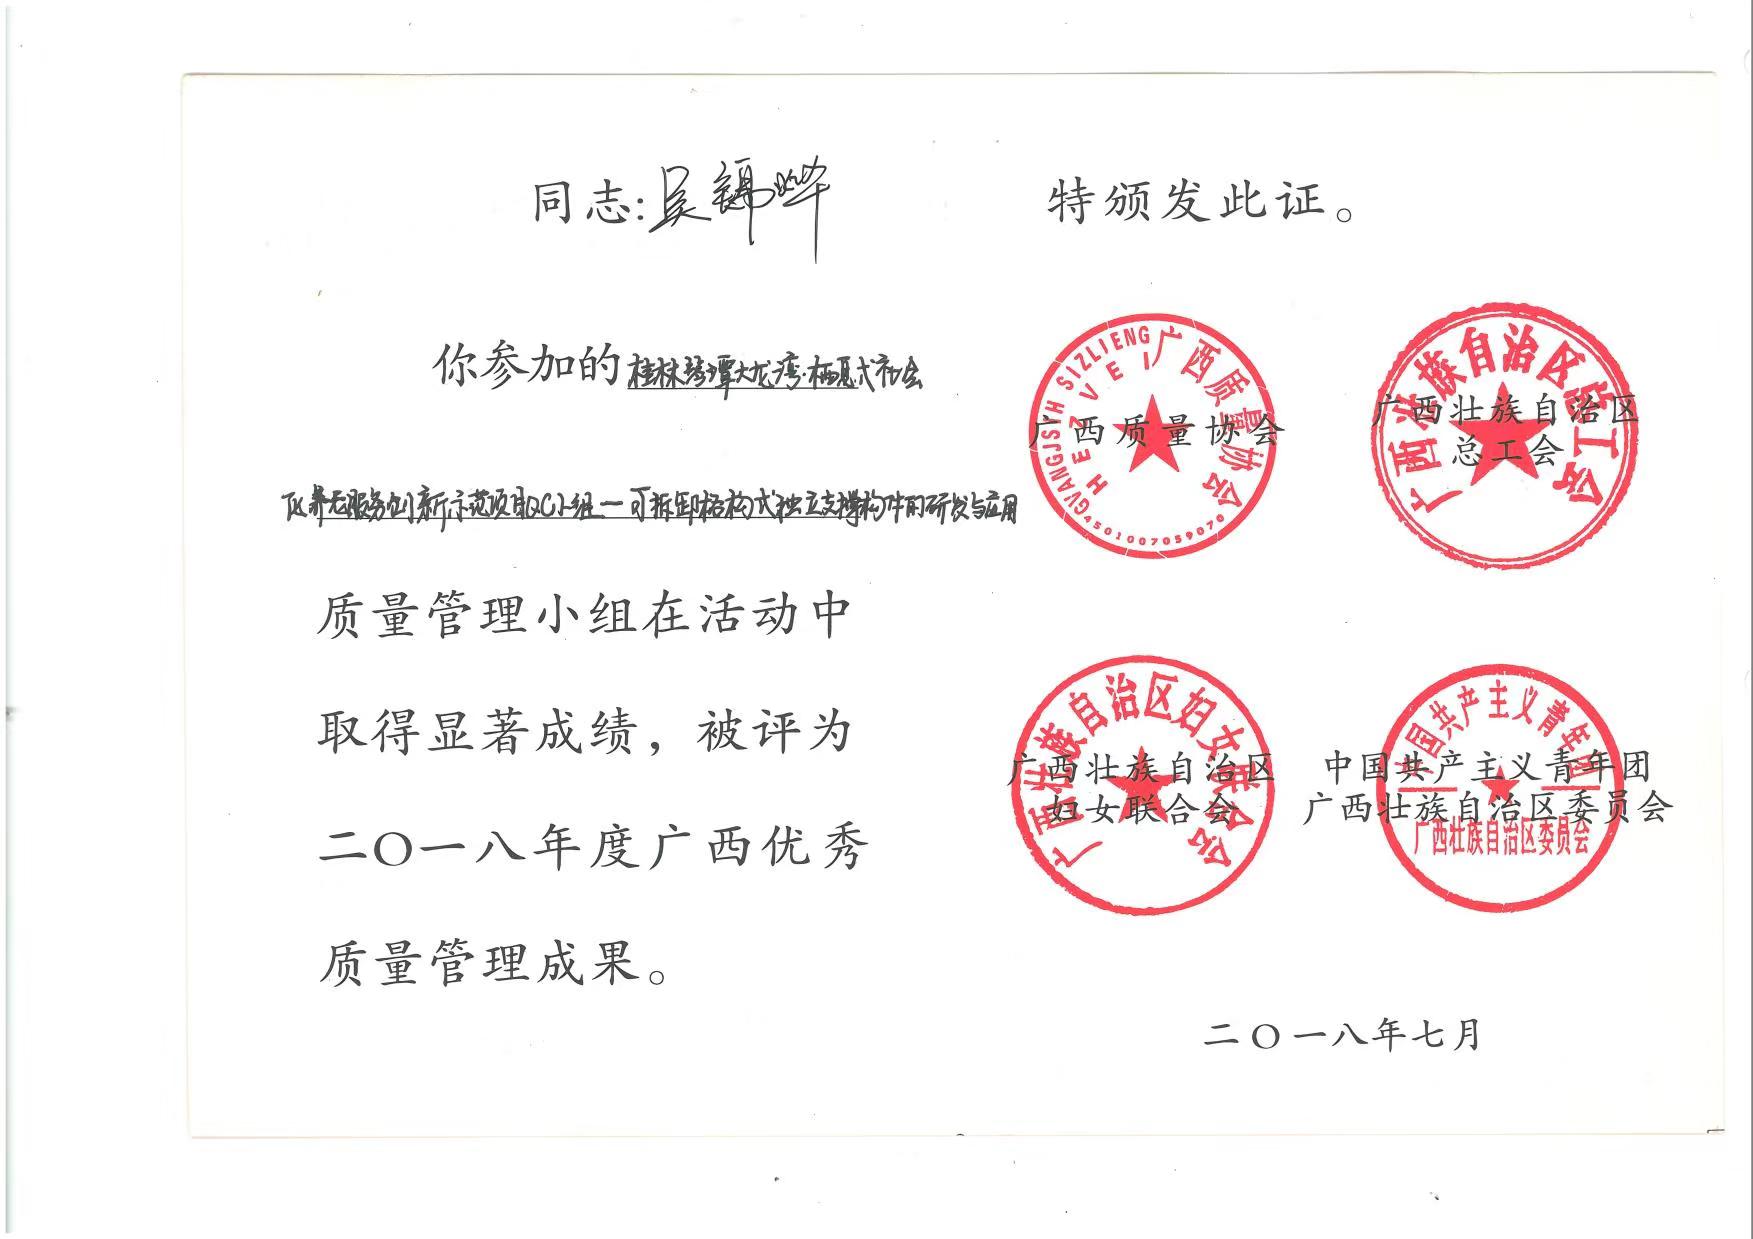 同志:吴锦晔
你参加的桂林琴潭大龙湾·栖息式社会
化养老服务创新示范项目QC小组—可拆卸格构式独立支撑构件的研发与应用
质量管理小组在活动中
取得显著成绩，被评为
二〇一八年度广西优秀
质量管理成果。
特颁发此证。
GVANGJSIH SIZLIENG
HEZVEI
广西质量协会
4501007059070
广西质量协会
广西壮族自治区总工会
广西壮族自治区
总工会
广西壮族自治区妇女联合会
广西壮族自治区
妇女联合会
中国共产主义青年团
广西壮族自治区委员会
中国共产主义青年团
广西壮族自治区委员会
二〇一八年七月